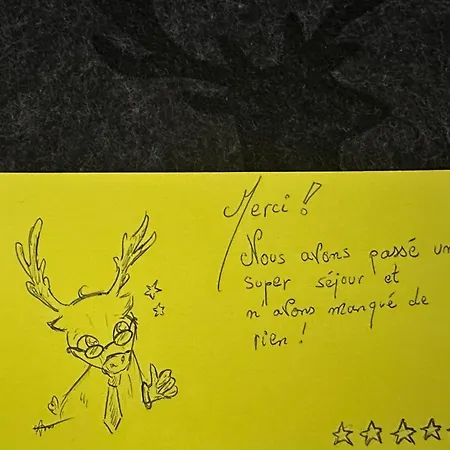 Merci !
Nous avons passé un
super séjour et
n'avons manqué de
rien !